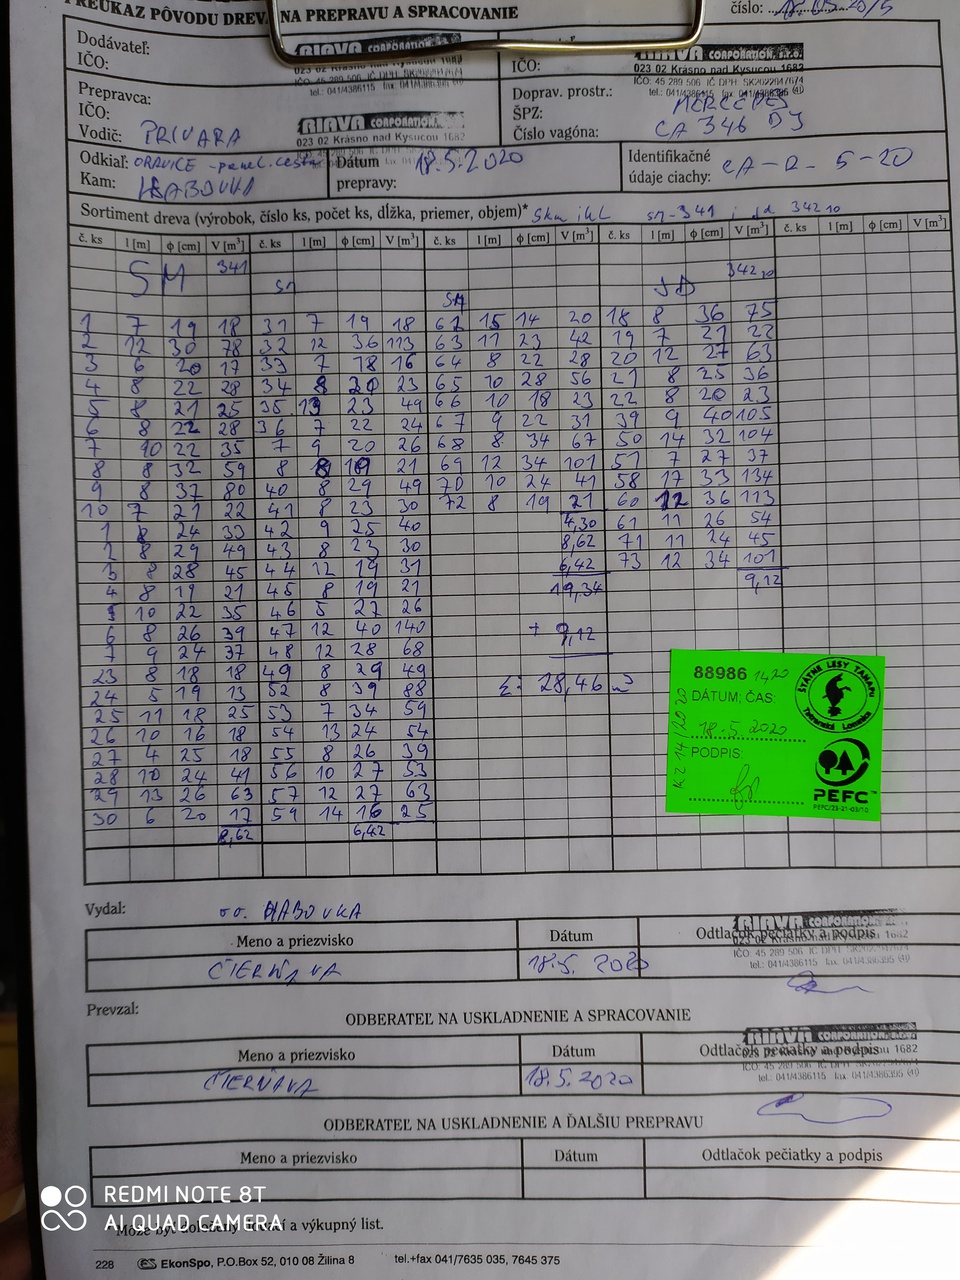 PREUKAZ PÔVODU DREVA NA PREPRAVU A SPRACOVANIE
číslo:
Dodávateľ:
IČO:
RIAVA CORPORATION, s.r.o.
023 02 Krásno nad Kysucou 1682
IČO:
RIAVA CORPORATION, s.r.o.
023 02 Krásno nad Kysucou 1682
IČO: 45 289 506 IČ DPH
tel.: 041/4386115 fax
Prepravca:
IČO:
Vodič: PRIVARA
RIAVA CORPORATION
023 02 Krásno nad Kysucou 1682
Doprav. prostr.: MERCEDES
ŠPZ: CA 346 DJ
Číslo vagóna:
Odkiaľ: ORAVICE - panel. cesta
Kam: HABOVKA
Dátum prepravy: 18.5.2020
Identifikačné údaje ciachy: CA - 5-20
Sortiment dreva (výrobok, číslo ks, počet ks, dĺžka, priemer, objem)* sm-341 jd 342
č. ks l [m] ϕ [cm] V [m³] č. ks l [m] ϕ [cm] V [m³] č. ks l [m] ϕ [cm] V [m³] č. ks l [m] ϕ [cm] V [m³] č. ks l [m] ϕ [cm] V [m³]
SM 341 SM SM JD 342
1 7 19 18 31 7 19 18 62 15 14 20 18 8 36 75
2 12 30 78 32 12 36 113 63 11 23 42 19 7 21 22
3 6 20 17 33 7 18 16 64 8 22 28 20 12 27 63
4 8 22 28 34 8 20 23 65 10 28 56 21 8 25 36
5 8 21 25 35 13 23 49 66 10 18 23 22 8 20 23
6 8 22 28 36 7 22 24 67 9 22 31 39 9 40 105
7 10 22 35 7 9 20 26 68 8 34 67 50 14 32 104
8 8 32 59 8 8 19 21 69 12 34 101 51 7 27 37
9 8 37 80 40 8 29 49 70 10 24 41 58 17 33 134
10 7 21 22 41 8 23 30 72 8 19 21 60 12 36 113
1 8 24 33 42 9 25 40 4,30 61 11 26 54
2 8 29 49 43 8 23 30 8,62 71 11 24 45
3 8 28 45 44 12 19 31 6,42 73 12 34 101
4 8 19 21 45 8 19 21 19,34 9,12
5 10 22 35 46 5 27 26
6 8 26 39 47 12 40 140 + 9,12
7 9 24 37 48 12 28 68
23 8 18 18 49 8 29 49 Σ: 28,46 m³
24 5 19 13 52 8 39 88
25 11 18 25 53 7 34 59
26 10 16 18 54 13 24 54
27 4 25 18 55 8 26 39
28 10 24 41 56 10 27 53
29 13 26 63 57 12 27 63
30 6 20 17 59 14 16 25
8,62 6,42
88986 1420
DÁTUM, ČAS:
18.5.2020
PODPIS
KZ 14/2020
ŠTÁTNE LESY TANAPU
Tatranská Lomnica
PEFC™
PEFC/23-21-03/10
Vydal: HABOVKA
Meno a priezvisko Dátum Odtlačok pečiatky a podpis
18.5. 2020
RIAVA CORPORATION
023 02 Krásno nad Kysucou 1682
IČO: 45 289 506 IČ DPH
tel.: 041/4386115 fax: 041/4386395
Prevzal:
ODBERATEĽ NA USKLADNENIE A SPRACOVANIE
Meno a priezvisko Dátum Odtlačok pečiatky a podpis
ČIERŇAVA 18.5.2020
RIAVA CORPORATION
1682
IČO: 45 289 506 IČ DPH
tel.: 041/4386115 fax: 041/4386395
ODBERATEĽ NA USKLADNENIE A ĎALŠIU PREPRAVU
Meno a priezvisko Dátum Odtlačok pečiatky a podpis
*Môže byť doložený dodací a výkupný list.
228 EkonSpo, P.O.Box 52, 010 08 Žilina 8 tel.+fax 041/7635 035, 7645 375
REDMI NOTE 8T
AI QUAD CAMERA